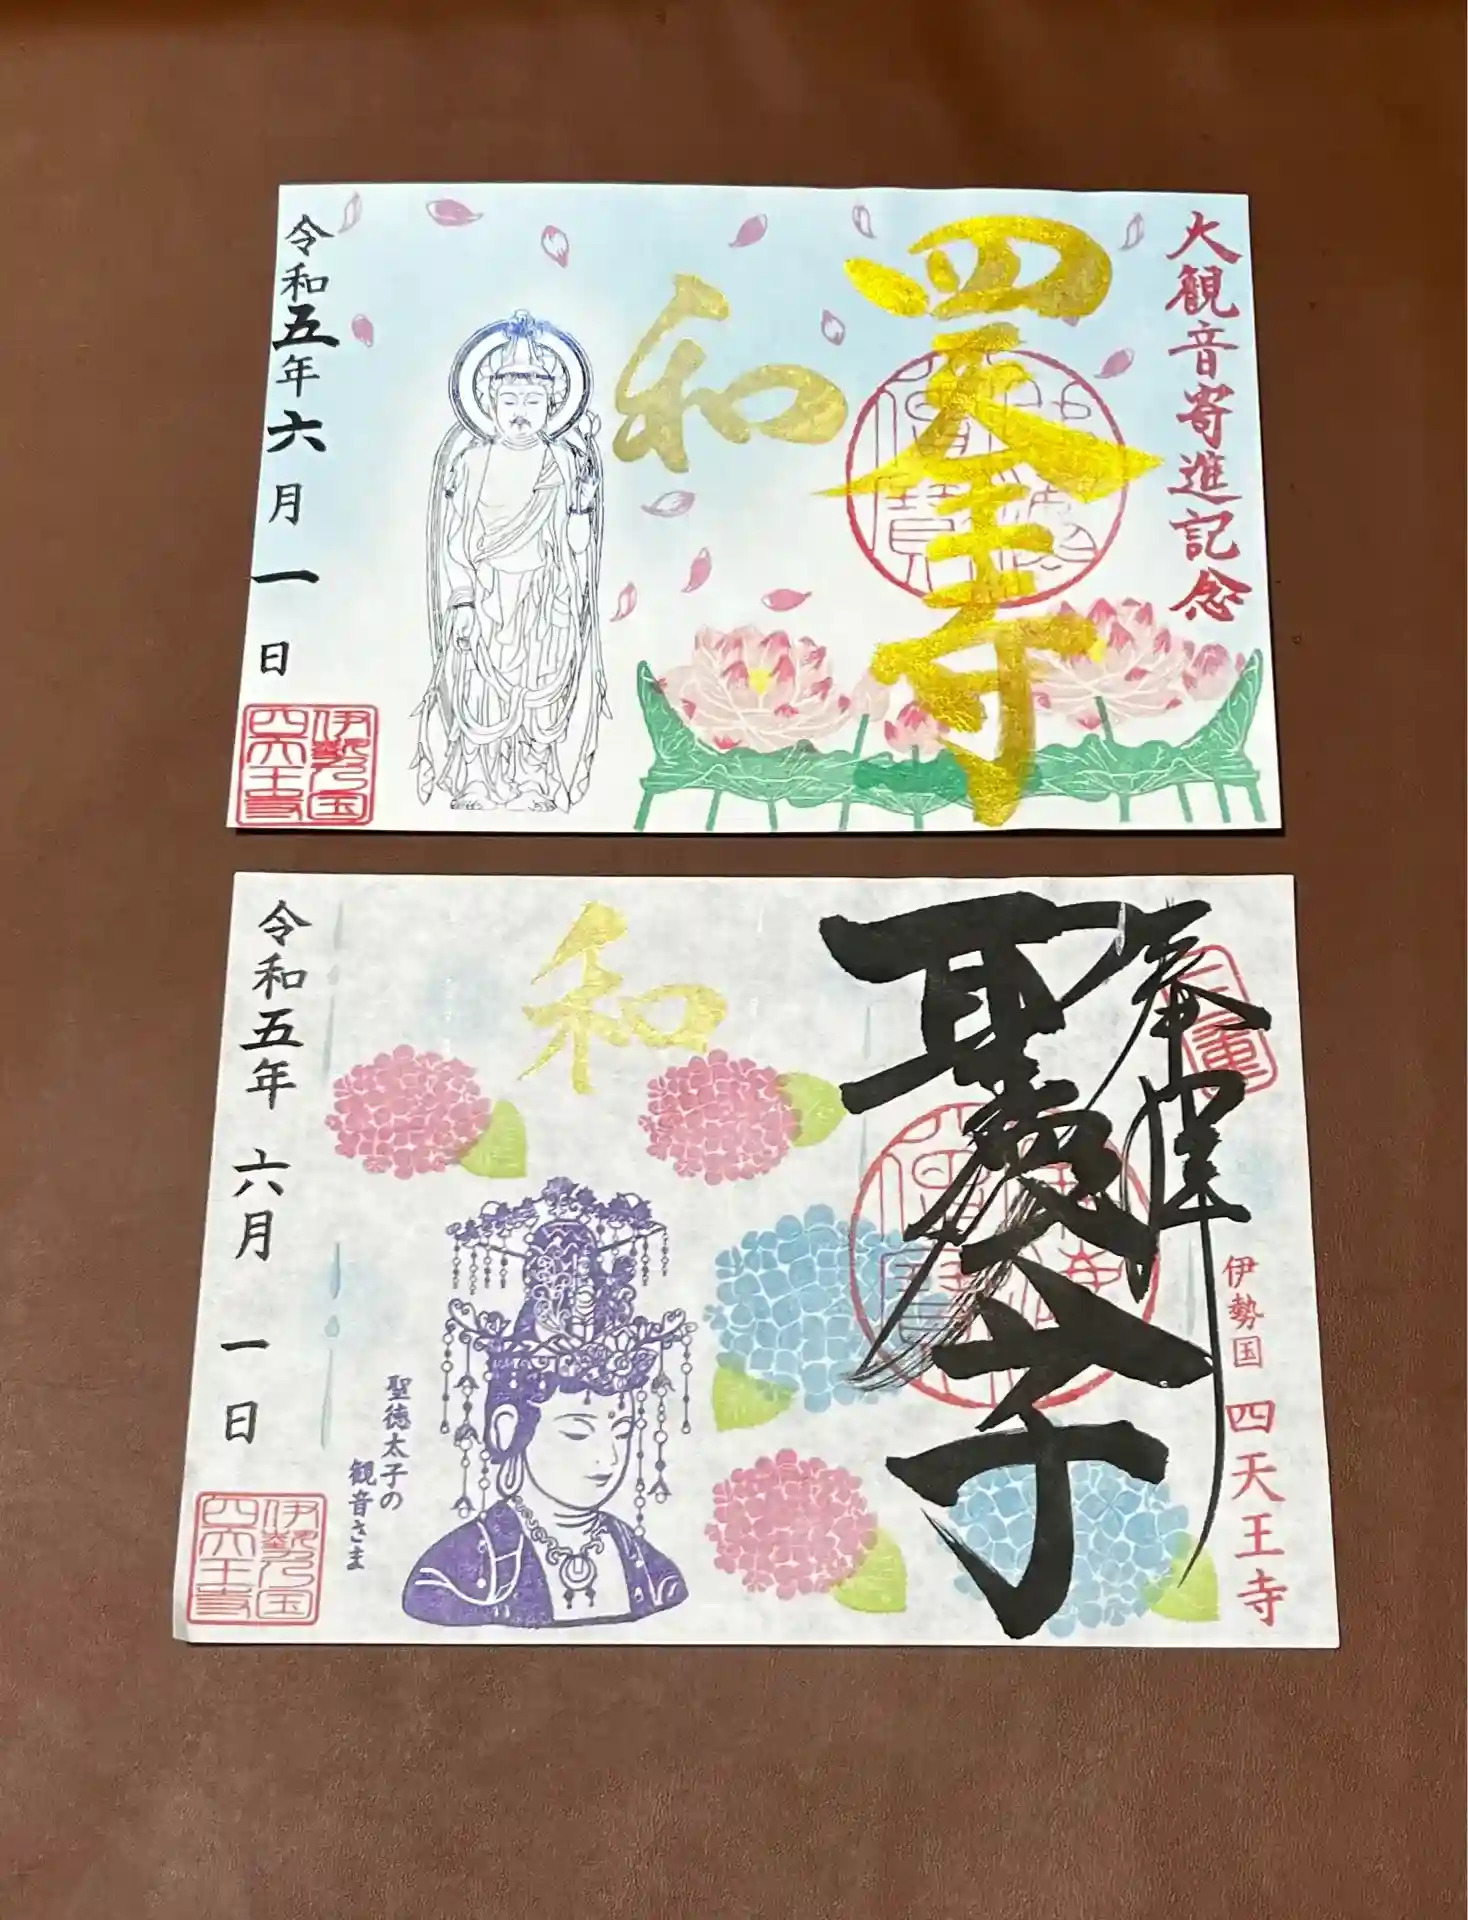 大観音寄進記念
四天王寺
和
令和五年六月一日
伊勢乃国
四天王寺
奉拝
三重
伊勢国 四天王寺
聖徳太子
和
聖徳太子の
観音さま
令和五年 六月 一日
伊勢乃国
四天王寺